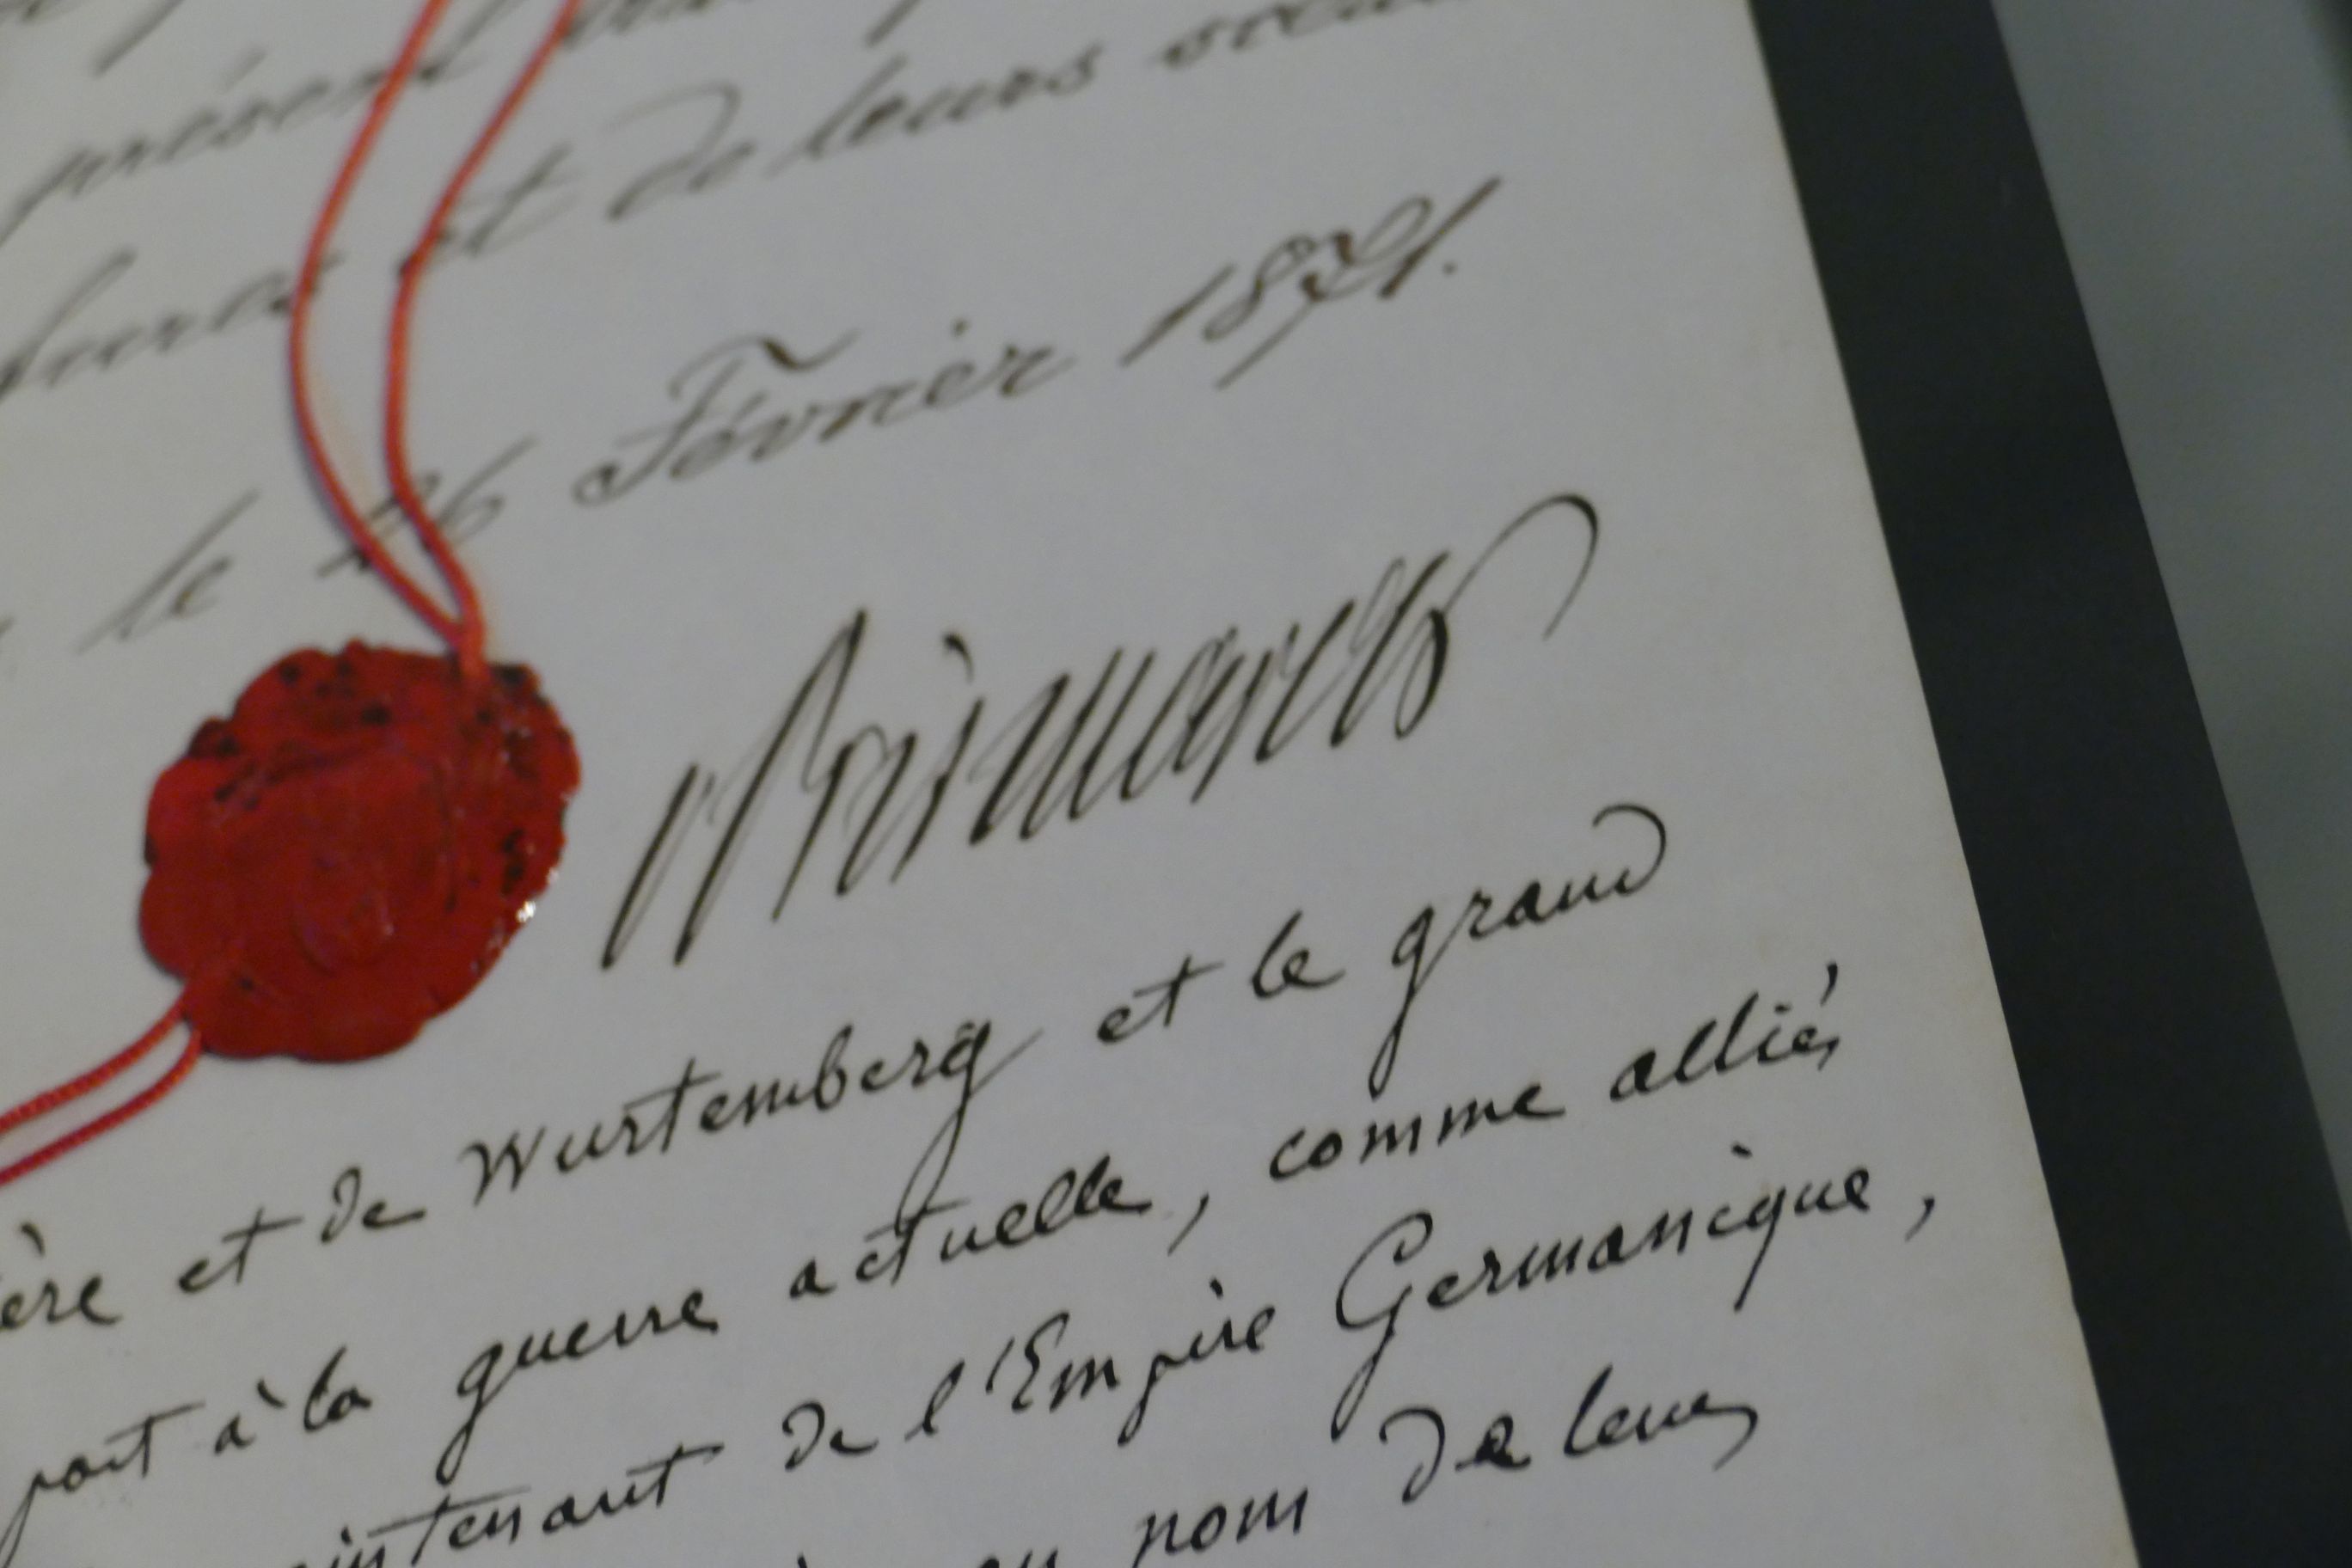 présent
et de leurs
le 26 Février 1871.
v. Bismarck
ère et de Wurtemberg et le grand
part à la guerre actuelle, comme alliés
intenant de l'Empire Germanique,
nom de leurs